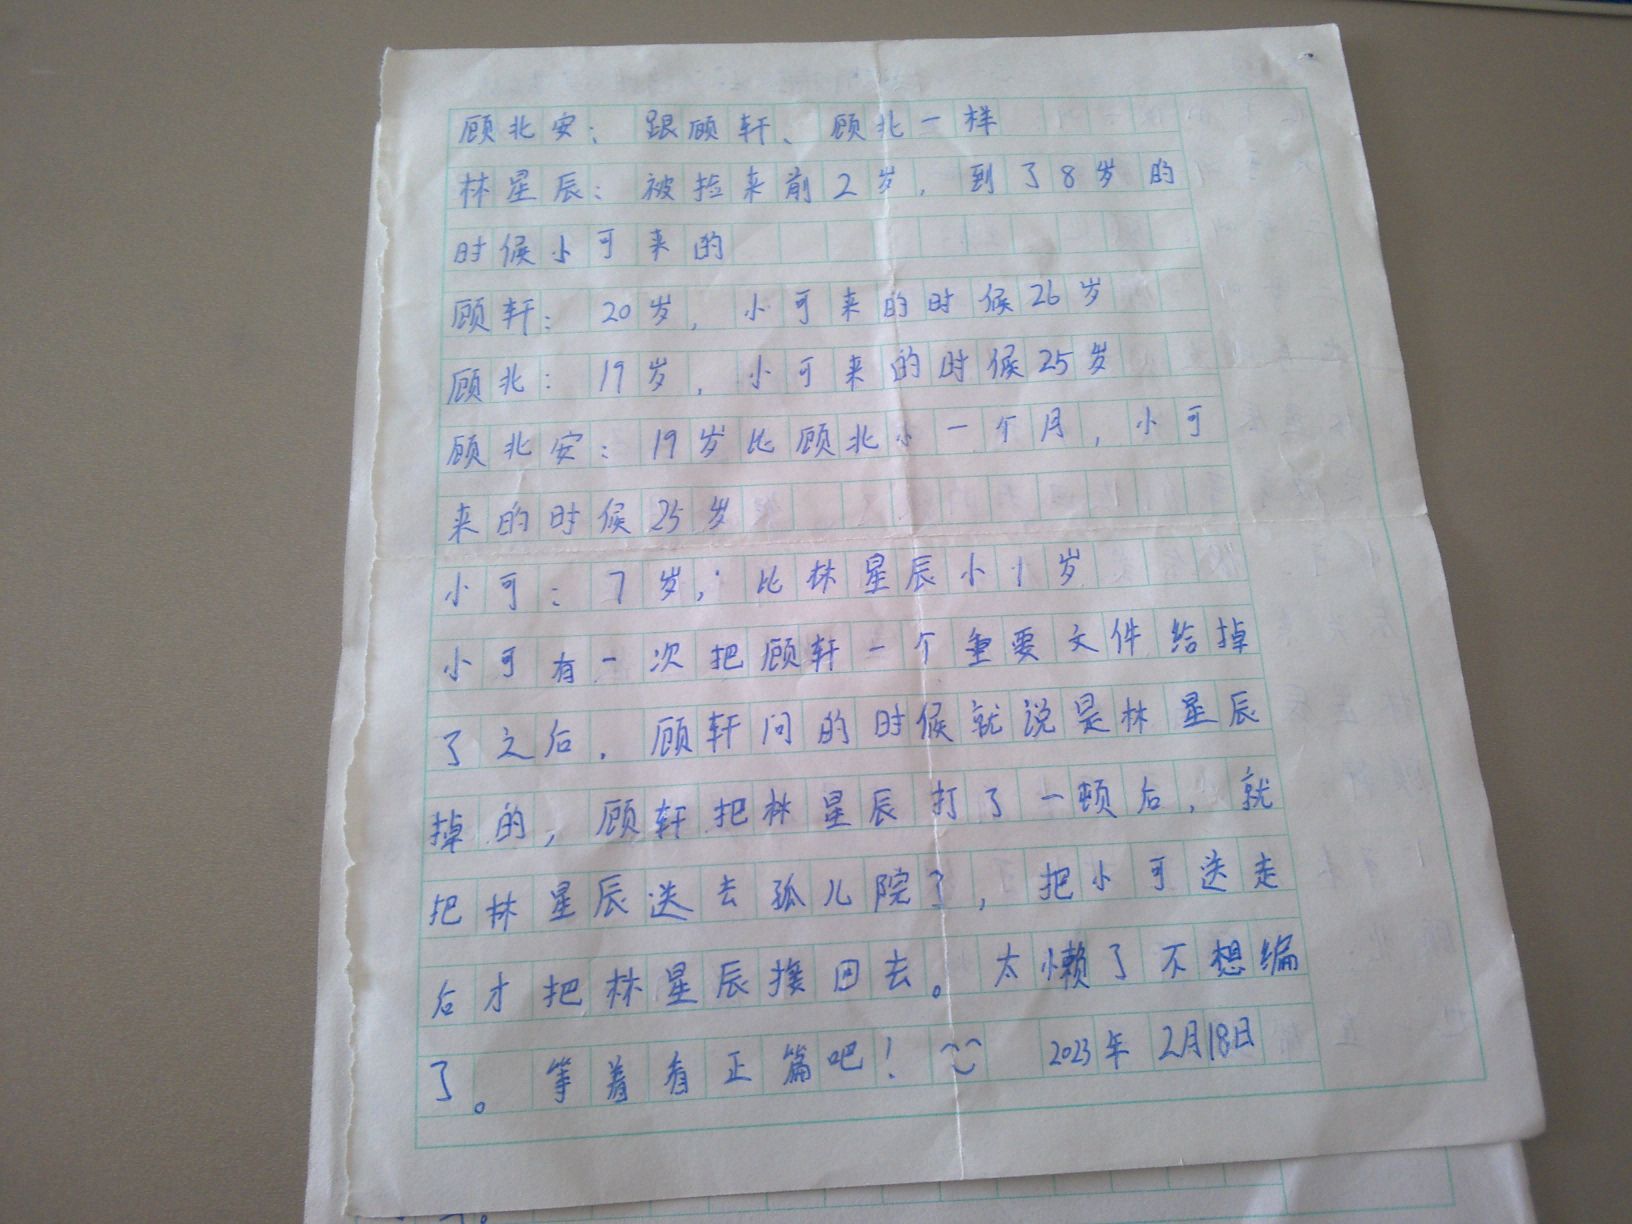 顾北安：跟顾轩、顾北一样
林星辰：被捡来前2岁，到了8岁的
时候小可来的
顾轩：20岁，小可来的时候26岁
顾北：19岁，小可来的时候25岁
顾北安：19岁比顾北小一个月，小可
来的时候25岁
小可：7岁；比林星辰小1岁
小可有一次把顾轩一个重要文件给掉
了之后，顾轩问的时候就说是林星辰
掉的，顾轩把林星辰打了一顿后，就
把林星辰送去孤儿院了，把小可送走
后才把林星辰接回去。太懒了不想编
了。等着有正篇吧！ 2023年2月18日